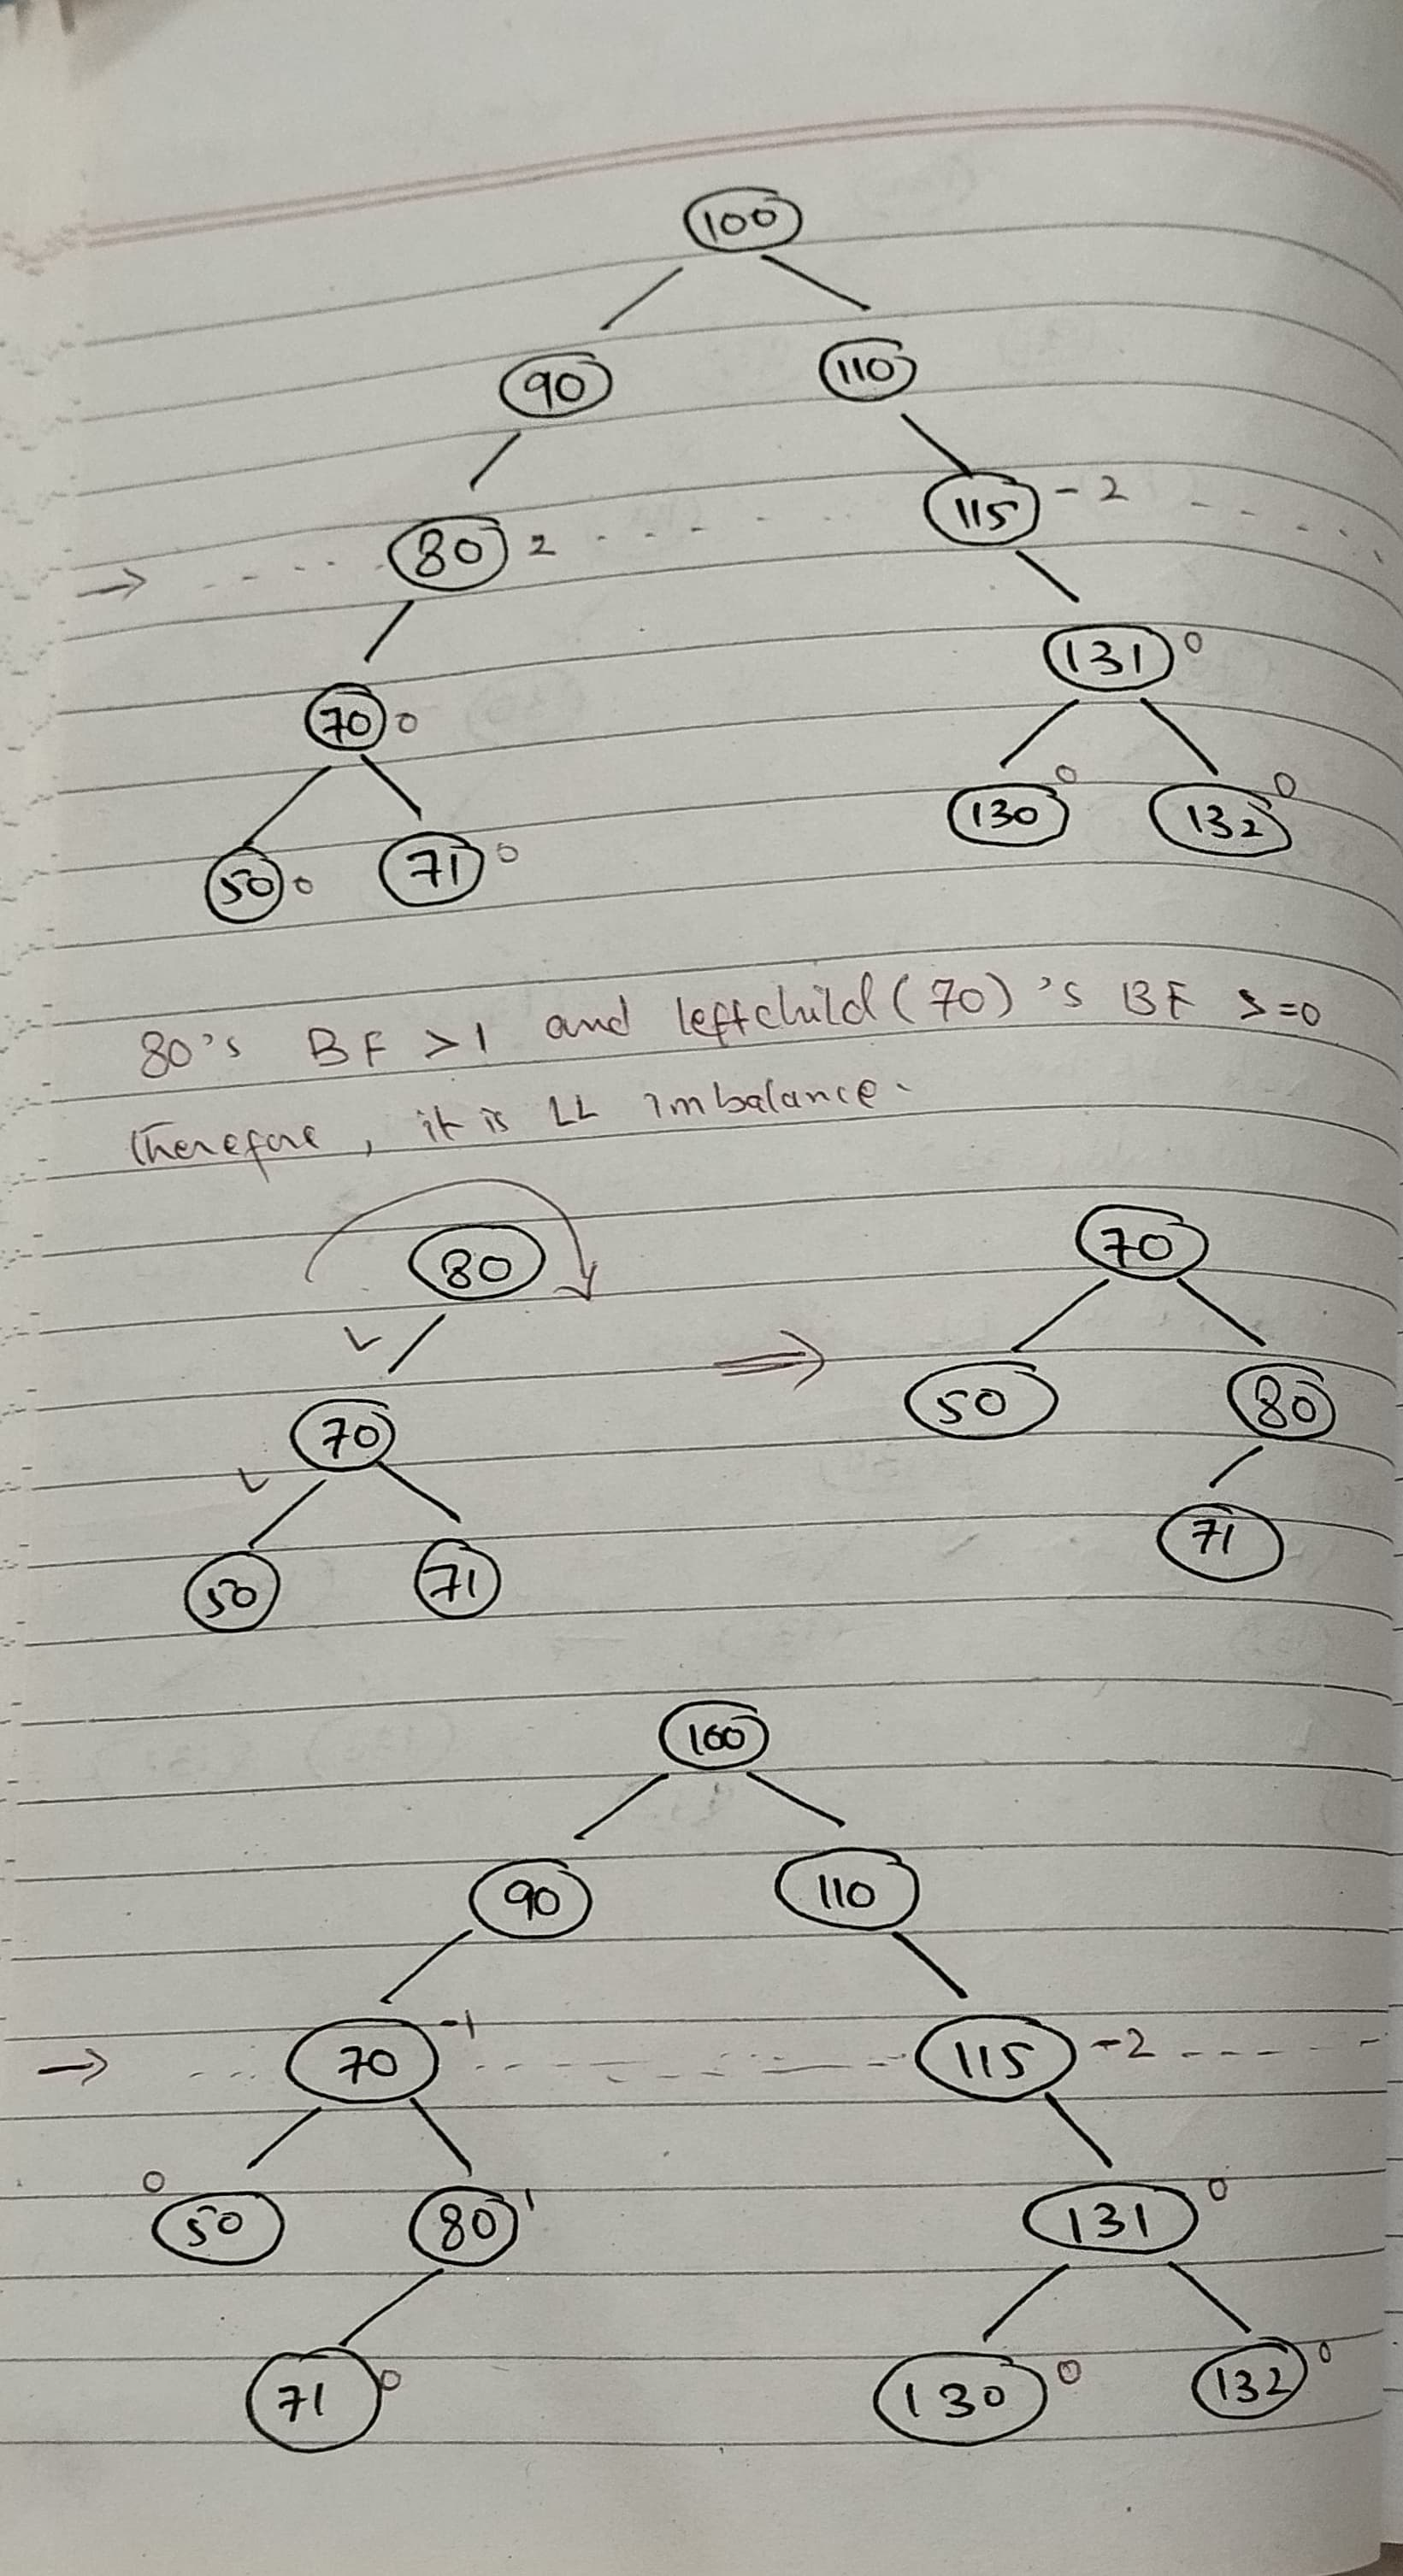 100
90 110
80 2 115 -2
→
70 0 131 0
50 0 71 0 130 0 132 0
80's BF >1 and leftchild(70)'s BF >=0
therefore, it is LL imbalance.
80 70
L ⇒
70 50 80
L
50 71 71
100
90 110
→ 70 -1 115 -2
0 50 80 1 131 0
71 0 130 0 132 0